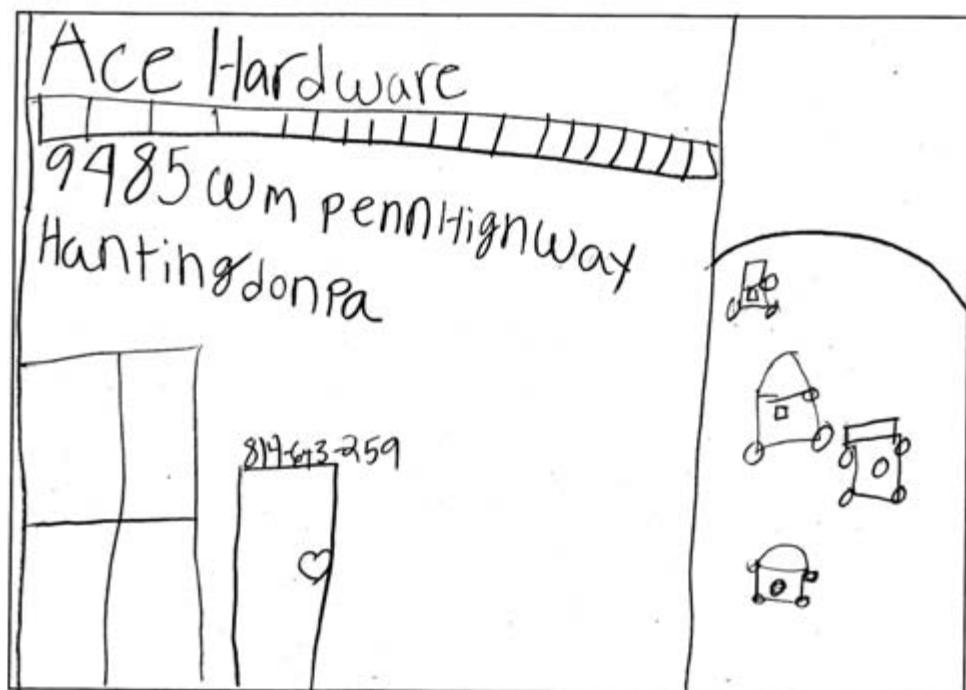 Ace Hardware
9485 wm pennHighway
Hantingdonpa
814-643-259